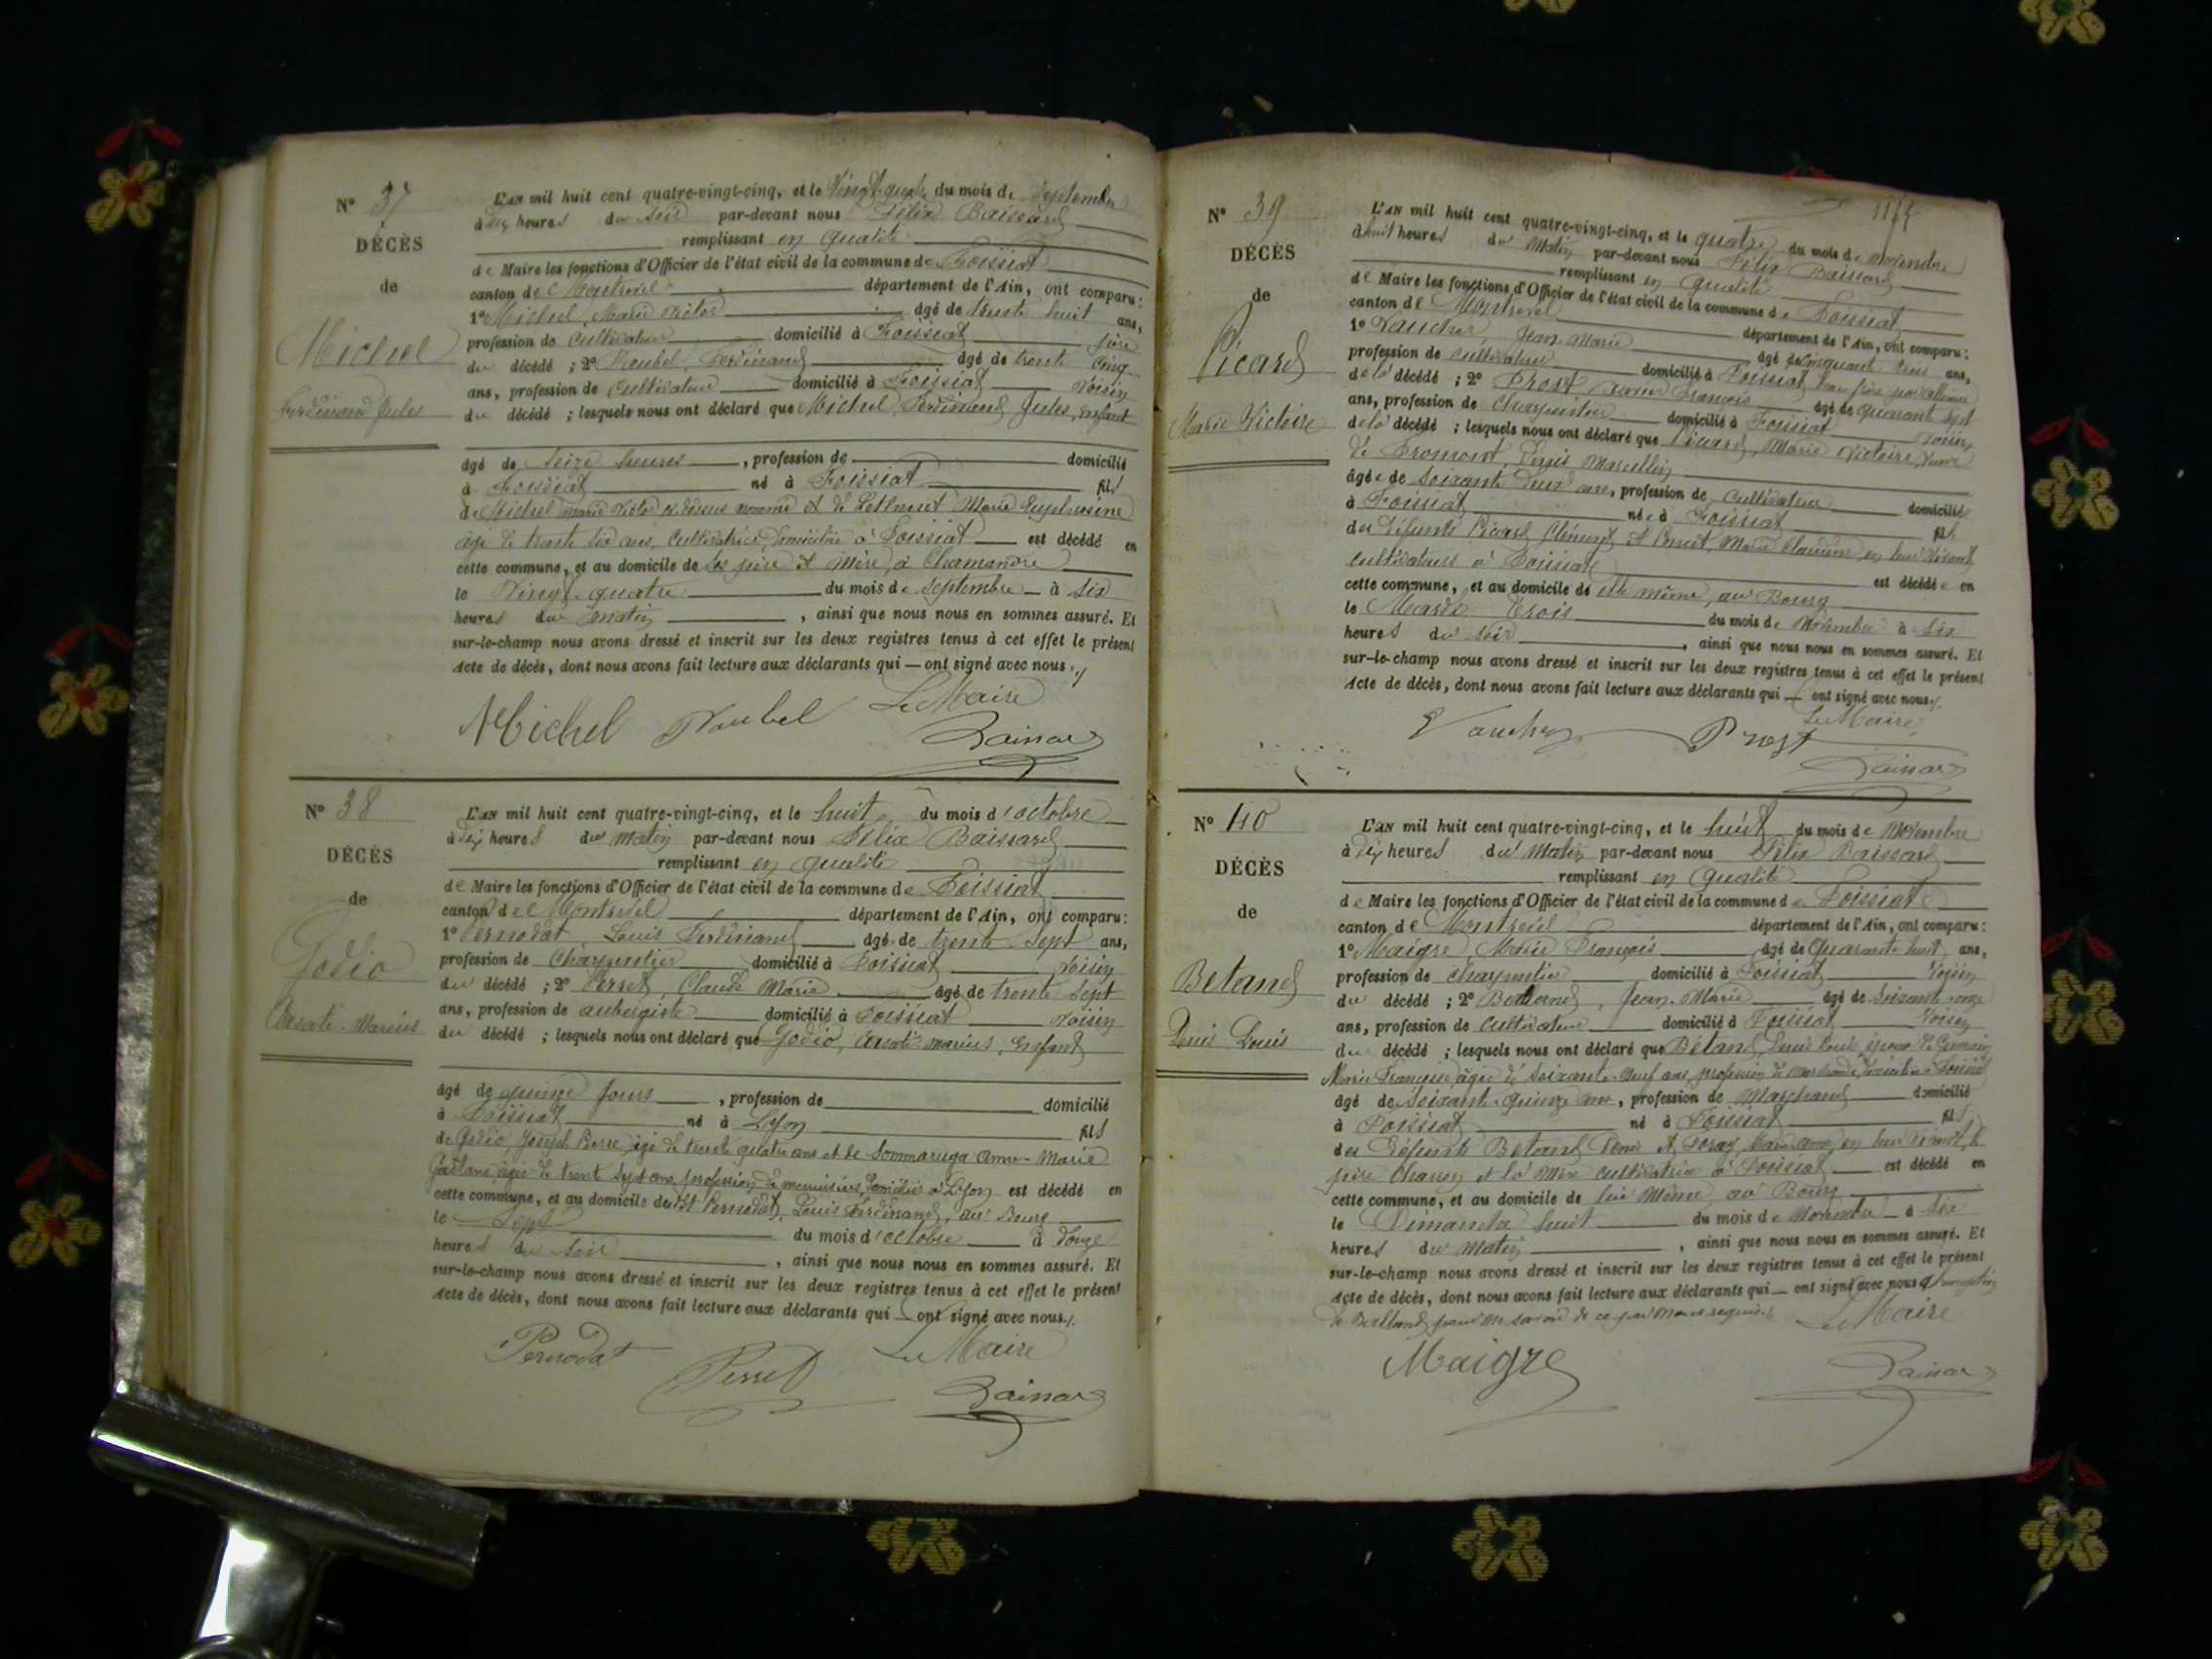 N° 37
DÉCÈS
de
Michel
Ferdinand Jules
L'AN mil huit cent quatre-vingt-cinq, et le Vingt quatre du mois de Septembre
à dix heures du soir par-devant nous Félix Baissard
remplissant en qualité
de Maire les fonctions d'Officier de l'état civil de la commune de Foissiat
canton de Montrevel département de l'Ain, ont comparu :
1° Michel, Marie Victor âgé de trente huit ans,
profession de Cultivateur domicilié à Foissiat père
du décédé ; 2° Ferdinand âgé de trente Cinq
ans, profession de Cultivateur domicilié à Foissiat Voisin
du décédé ; lesquels nous ont déclaré que Michel, Ferdinand Jules, Enfant
âgé de Seize heures , profession de domicilié
à Foissiat né à Foissiat fils
de Michel Marie Victor ci dessus nommé et de Marie Euphrosine
âgée de trente Six ans, Cultivatrice, domiciliée à Foissiat est décédé en
cette commune, et au domicile de ses père et mère, à Chamandre
le Vingt quatre du mois de Septembre à Six
heures du matin , ainsi que nous nous en sommes assuré. Et
sur-le-champ nous avons dressé et inscrit sur les deux registres tenus à cet effet le présent
Acte de décès, dont nous avons fait lecture aux déclarants qui — ont signé avec nous.
Michel Le Maire
Baissard
N° 38
DÉCÈS
de
Godio
Marius
L'AN mil huit cent quatre-vingt-cinq, et le huit du mois d'octobre
à dix heures du matin par-devant nous Félix Baissard
remplissant en qualité
de Maire les fonctions d'Officier de l'état civil de la commune de Foissiat
canton de Montrevel département de l'Ain, ont comparu :
1° Pernodat, Louis Ferdinand âgé de trente Sept ans,
profession de Charpentier domicilié à Foissiat Voisin
du décédé ; 2° Perret, Claude Marie âgé de trente Sept
ans, profession de aubergiste domicilié à Foissiat Voisin
du décédé ; lesquels nous ont déclaré que Godio, marius, Enfant
âgé de quinze jours , profession de domicilié
à Foissiat né à Lyon fils
de Godio, Joseph Pierre, âgé de trente quatre ans et de Sommaruga Anne-Marie
Gaëtane âgée de trente Sept ans, profession de menuisier, domiciliés à Lyon est décédé en
cette commune, et au domicile du dit Pernodat, Louis Ferdinand, au Bourg
le Sept du mois d'octobre à douze
heures du Soir , ainsi que nous nous en sommes assuré. Et
sur-le-champ nous avons dressé et inscrit sur les deux registres tenus à cet effet le présent
Acte de décès, dont nous avons fait lecture aux déclarants qui — ont signé avec nous.
Pernodat Perret Le Maire
Baissard
N° 39
DÉCÈS
de
Picard
Marie Victoire
L'AN mil huit cent quatre-vingt-cinq, et le quatre du mois de novembre
à huit heures du Matin par-devant nous Félix Baissard
remplissant en qualité
de Maire les fonctions d'Officier de l'état civil de la commune de Foissiat
canton de Montrevel département de l'Ain, ont comparu :
1° Vaucher, Jean-Marie âgé de cinquante trois ans,
profession de Cultivateur domicilié à Foissiat beau frère par alliance
de la décédé ; 2° Prost François âgé de quarante Sept
ans, profession de Charpentier domicilié à Foissiat Voisin
de la décédé ; lesquels nous ont déclaré que Picard, Marie Victoire, Veuve
de Fromont, Denis Marcellin
âgée de Soixante deux ans, profession de Cultivateur domicilié
à Foissiat née à Foissiat fil
des défunts Picard Clément et Marie Claudine en leur vivant
cultivateurs à Foissiat est décédée en
cette commune, et au domicile de elle même, au Bourg
le Mardi trois du mois de Novembre à Six
heures du Soir , ainsi que nous nous en sommes assuré. Et
sur-le-champ nous avons dressé et inscrit sur les deux registres tenus à cet effet le présent
Acte de décès, dont nous avons fait lecture aux déclarants qui — ont signé avec nous.
Vaucher Prost Le Maire
Baissard
N° 40
DÉCÈS
de
Betand
Denis Louis
L'AN mil huit cent quatre-vingt-cinq, et le huit du mois de Novembre
à dix heures du Matin par-devant nous Félix Baissard
remplissant en qualité
de Maire les fonctions d'Officier de l'état civil de la commune de Foissiat
canton de Montrevel département de l'Ain, ont comparu :
1° Maigre, Marie François âgé de Quarante huit ans,
profession de Charpentier domicilié à Foissiat Voisin
du décédé ; 2° Jean-Marie âgé de Soixante onze
ans, profession de Cultivateur domicilié à Foissiat Voisin
du décédé ; lesquels nous ont déclaré que Bétand, Denis Louis époux de Germain
Marie Françoise, âgée de Soixante neuf ans, profession de marchande, domiciliée à Foissiat
âgé de Soixante-quinze ans, profession de Marchand domicilié
à Foissiat né à Foissiat fils
des défunts Betand Denis et Marie Anne en leur vivant, le
père et la Mère Cultivatrice à Foissiat est décédé en
cette commune, et au domicile de lui Même, au Bourg
le Dimanche huit du mois de Novembre à Six
heures du Matin , ainsi que nous nous en sommes assuré. Et
sur-le-champ nous avons dressé et inscrit sur les deux registres tenus à cet effet le présent
Acte de décès, dont nous avons fait lecture aux déclarants qui — ont signé avec nous à l'exception
de pour ne savoir de ce par nous requis. Le Maire
Maigre Baissard